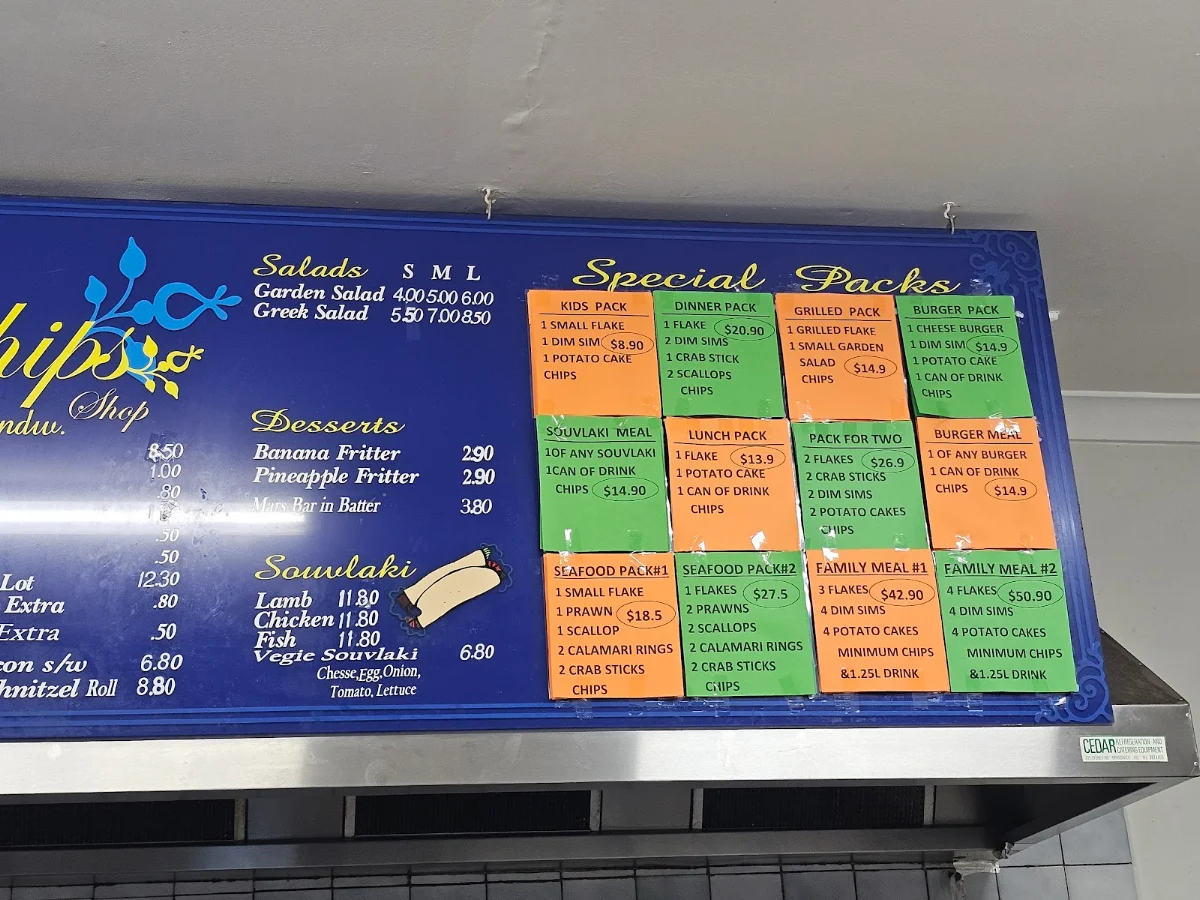 hips
Shop
ndw.
8.50
1.00
.80
.50
.50
Lot 12.30
Extra .80
Extra .50
con s/w 6.80
hnitzel Roll 8.80
Salads S M L
Garden Salad 4.00 5.00 6.00
Greek Salad 5.50 7.00 8.50
Desserts
Banana Fritter 2.90
Pineapple Fritter 2.90
Mars Bar in Batter 3.80
Souvlaki
Lamb 11.80
Chicken 11.80
Fish 11.80
Vegie Souvlaki 6.80
Chesse,Egg,Onion,
Tomato, Lettuce
Special Packs
KIDS PACK
1 SMALL FLAKE
1 DIM SIM $8.90
1 POTATO CAKE
CHIPS
DINNER PACK
1 FLAKE $20.90
2 DIM SIMS
1 CRAB STICK
2 SCALLOPS
CHIPS
GRILLED PACK
1 GRILLED FLAKE
1 SMALL GARDEN
SALAD $14.9
CHIPS
BURGER PACK
1 CHEESE BURGER
1 DIM SIM $14.9
1 POTATO CAKE
1 CAN OF DRINK
CHIPS
SOUVLAKI MEAL
1OF ANY SOUVLAKI
1CAN OF DRINK
CHIPS $14.90
LUNCH PACK
1 FLAKE $13.9
1 POTATO CAKE
1 CAN OF DRINK
CHIPS
PACK FOR TWO
2 FLAKES $26.9
2 CRAB STICKS
2 DIM SIMS
2 POTATO CAKES
CHIPS
BURGER MEAL
1 OF ANY BURGER
1 CAN OF DRINK
CHIPS $14.9
SEAFOOD PACK#1
1 SMALL FLAKE
1 PRAWN $18.5
1 SCALLOP
2 CALAMARI RINGS
2 CRAB STICKS
CHIPS
SEAFOOD PACK#2
1 FLAKES $27.5
2 PRAWNS
2 SCALLOPS
2 CALAMARI RINGS
2 CRAB STICKS
CHIPS
FAMILY MEAL #1
3 FLAKES $42.90
4 DIM SIMS
4 POTATO CAKES
MINIMUM CHIPS
&1.25L DRINK
FAMILY MEAL #2
4 FLAKES $50.90
4 DIM SIMS
4 POTATO CAKES
MINIMUM CHIPS
&1.25L DRINK
CEDAR REFRIGERATION AND
CATERING EQUIPMENT